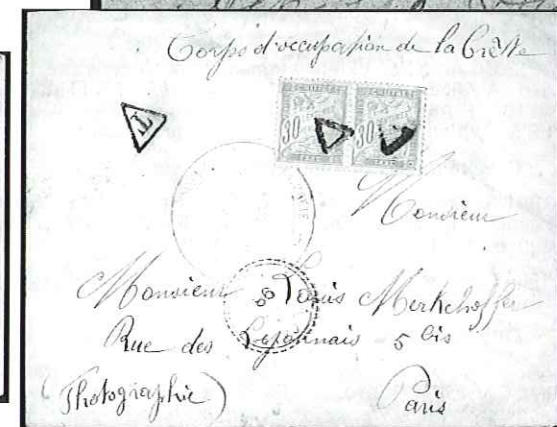 Corps d'occupation de la Crète
T
CHIFFRE CHIFFRE
30 30
Monsieur
Monsieur Louis Merkchoffer
Rue des Lyonnais 5 bis
(Photographie)
Paris